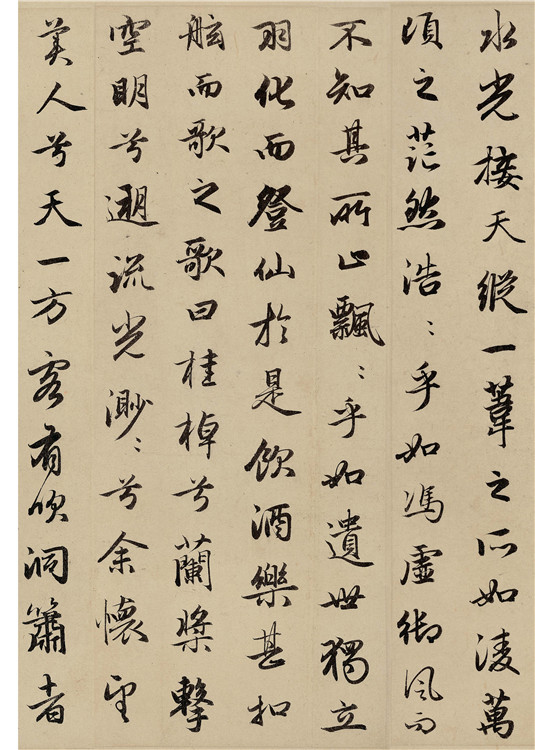 水光接天縱一葦之所如凌萬
頃之茫然浩〻乎如馮虛御風而
不知其所止飄〻乎如遺世獨立
羽化而登仙於是飲酒樂甚扣
舷而歌之歌曰桂棹兮蘭槳擊
空明兮遡流光渺〻兮余懷望
美人兮天一方客有吹洞簫者